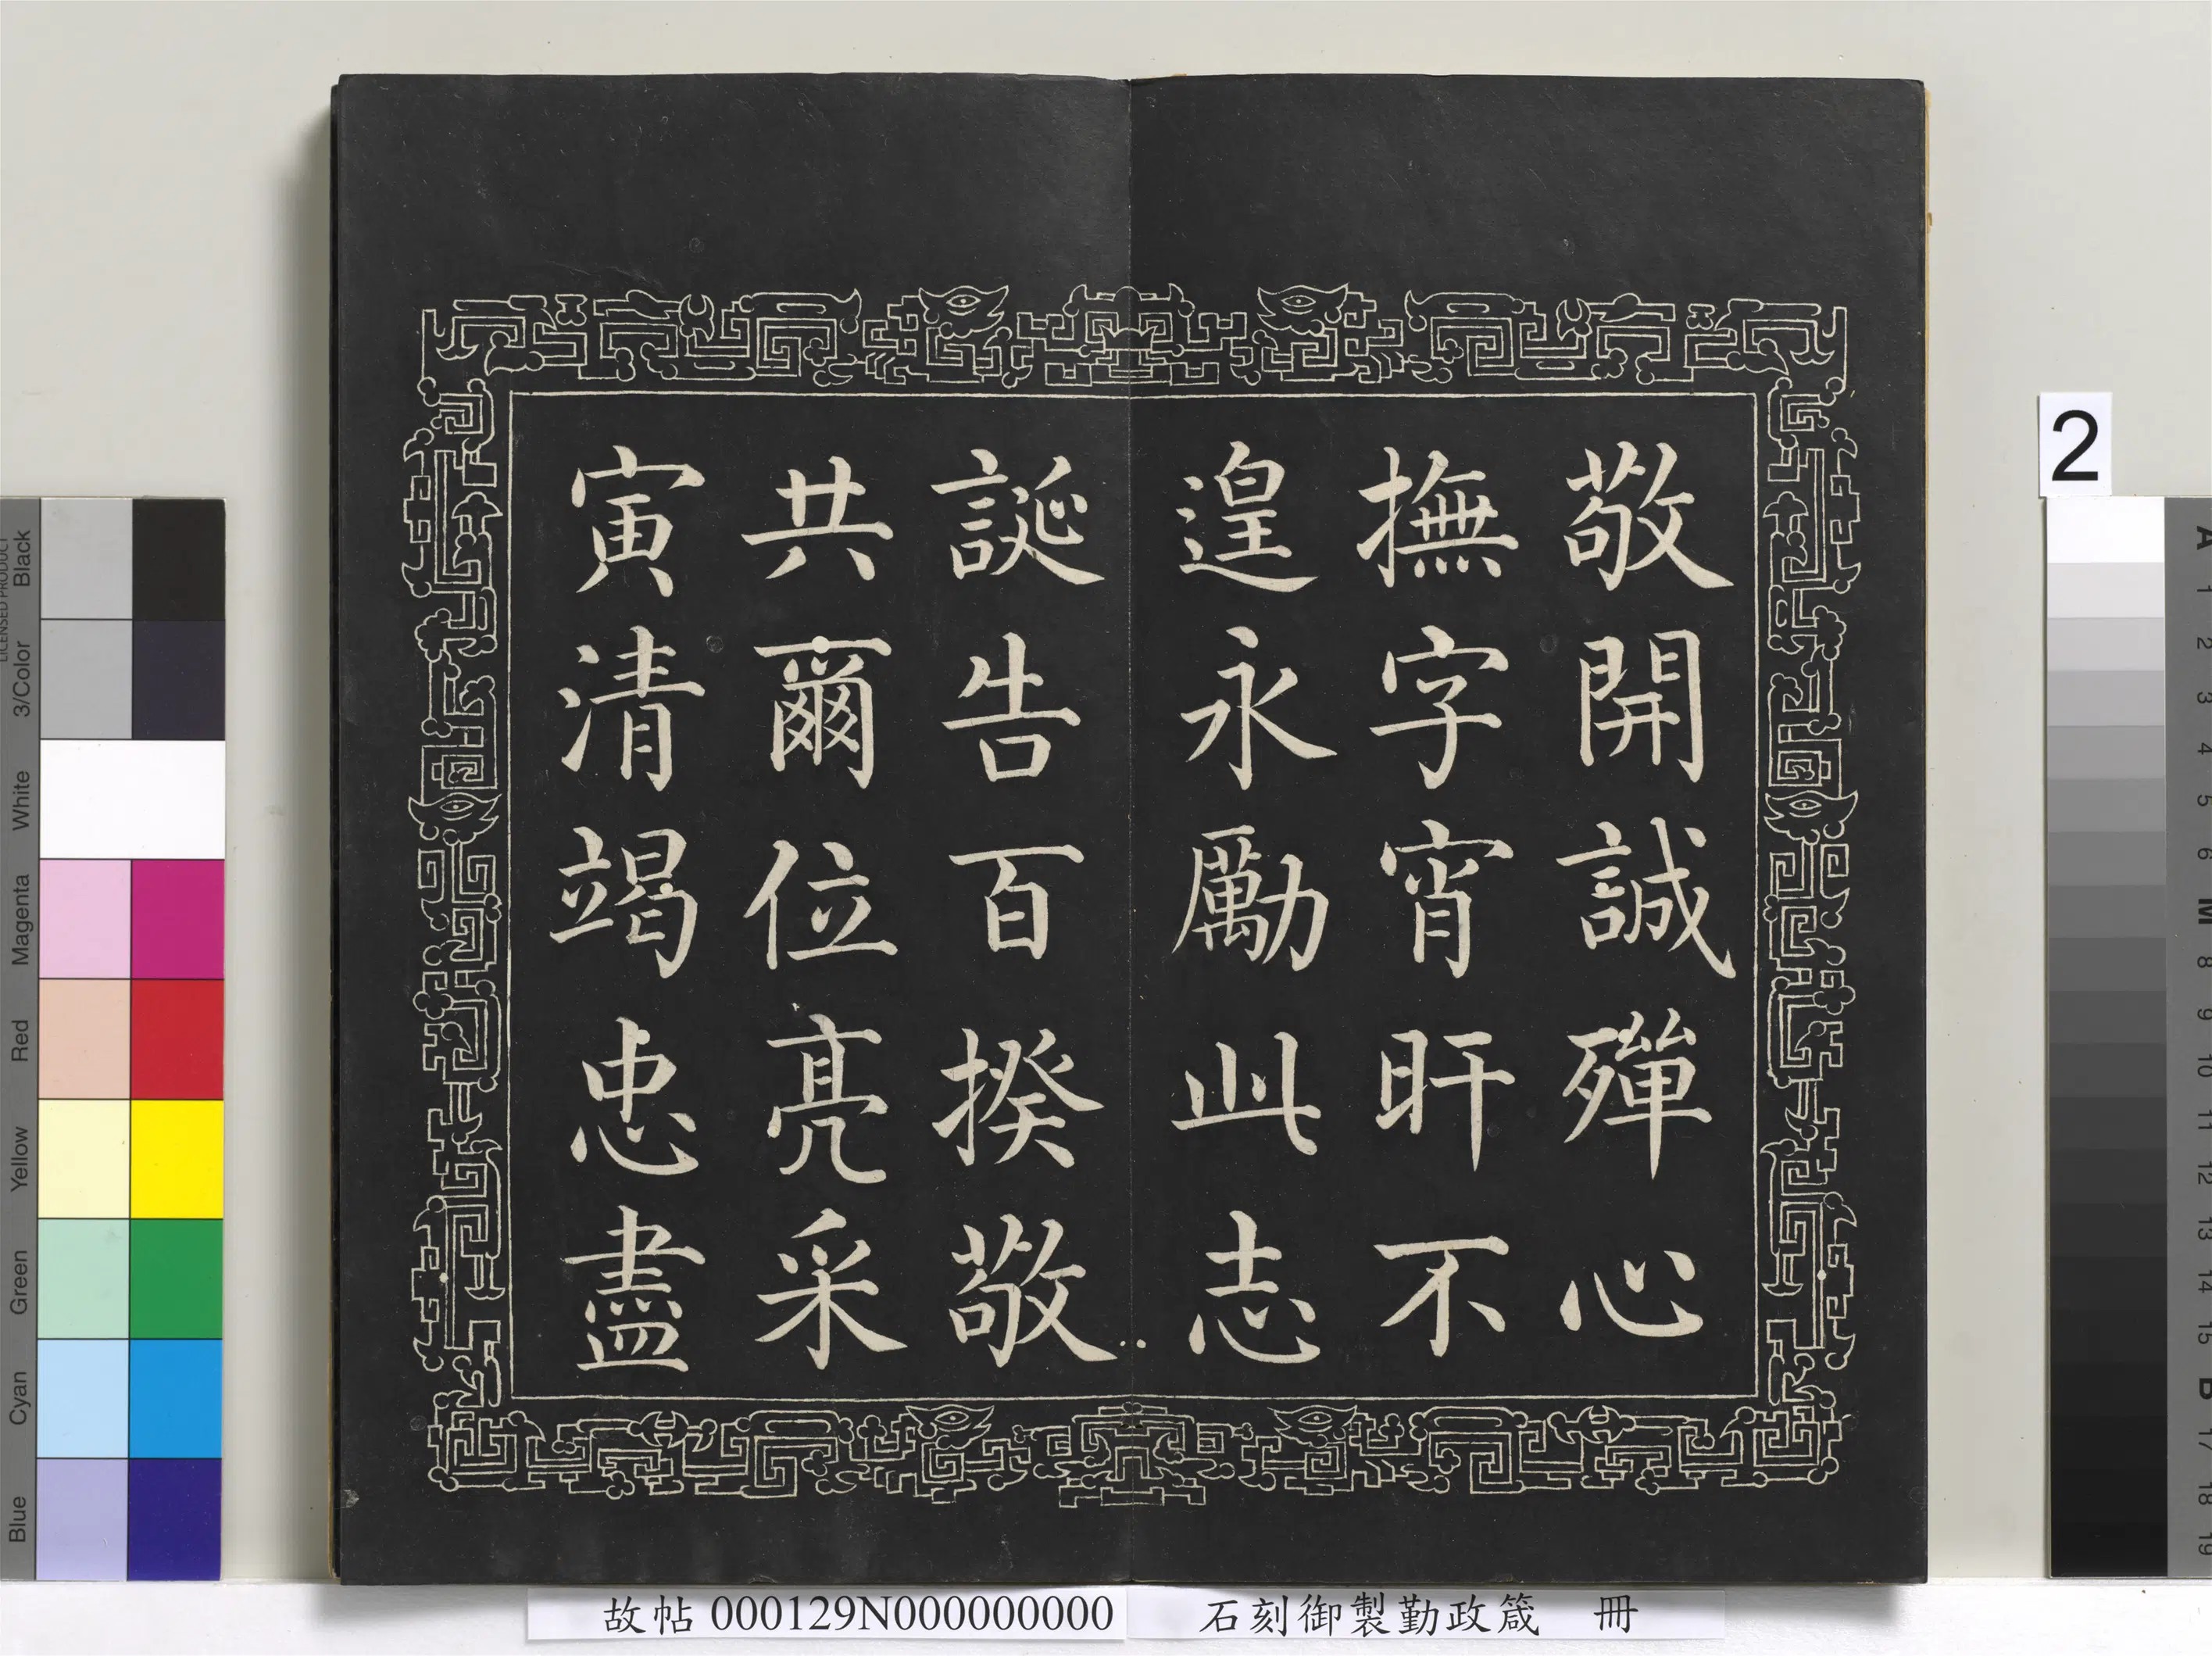 敬開誠殫心
撫字宵旰不
遑永勵此志
誕告百揆敬
共爾位亮采
寅清竭忠盡
故帖 000129N000000000
石刻御製勤政箴 冊
2
Black
3/Color
White
Magenta
Red
Yellow
Green
Cyan
Blue
LICENSED PRODUCT
A
1
2
3
4
5
6
M
8
9
10
11
12
13
14
15
B
17
18
19